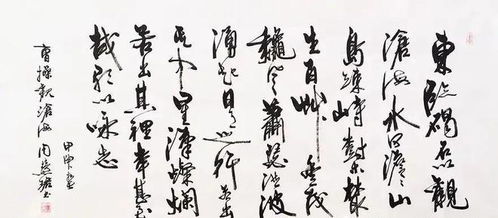 東臨碣石觀
滄海水何澹山
島竦峙樹叢
生百草豐茂
龝風蕭瑟洪波
湧起日月之行若出
其中星漢燦爛
若出其裡幸甚至
哉歌以詠志
曹操觀滄海